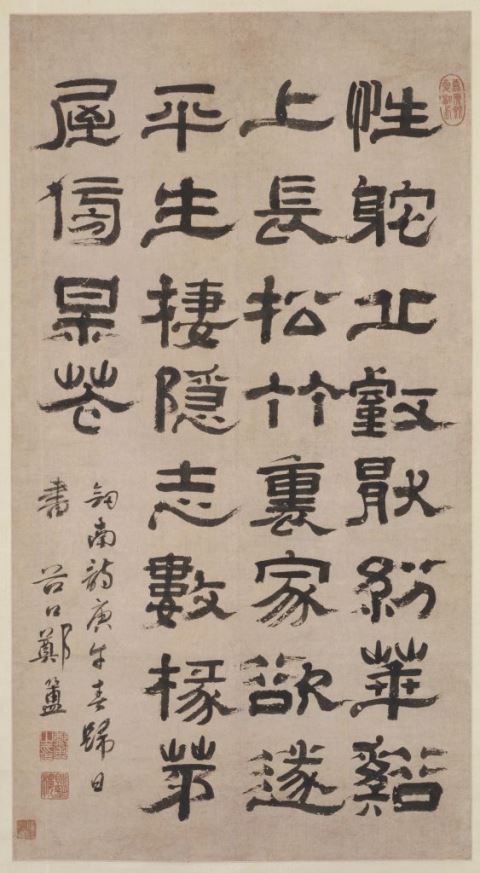 性躭丘壑猒紛華谿
上長松竹裏家欲遂
平生棲隱志數椽茅
屋傍呆花
劍南詩庚午春歸日
書 谷口鄭簠